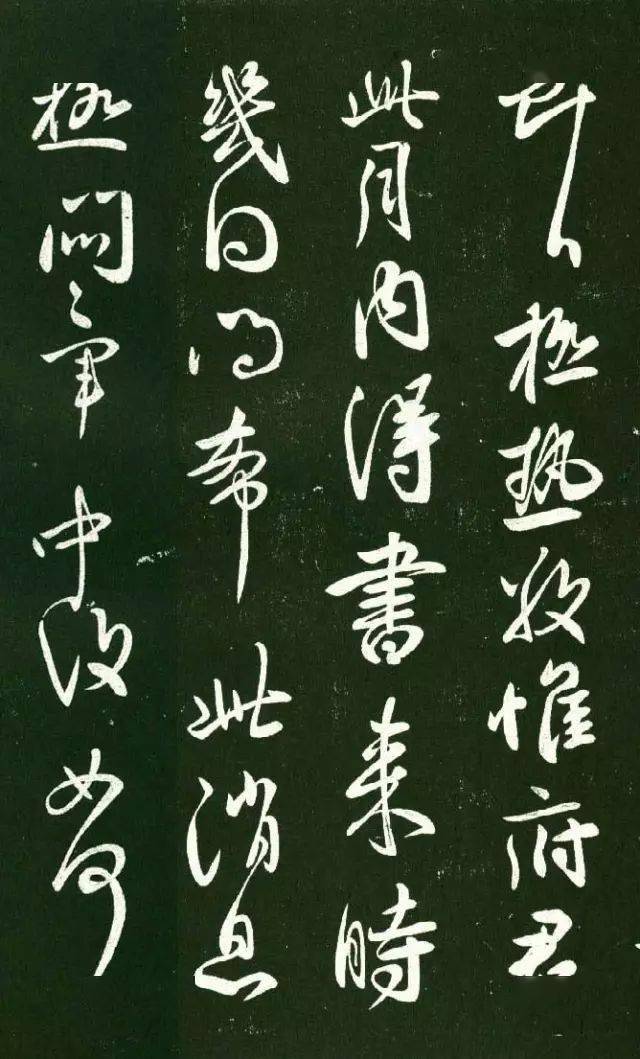 極熱敬惟府君
此月内得書來時
幾日希此消息
極悶〻軍中復如何